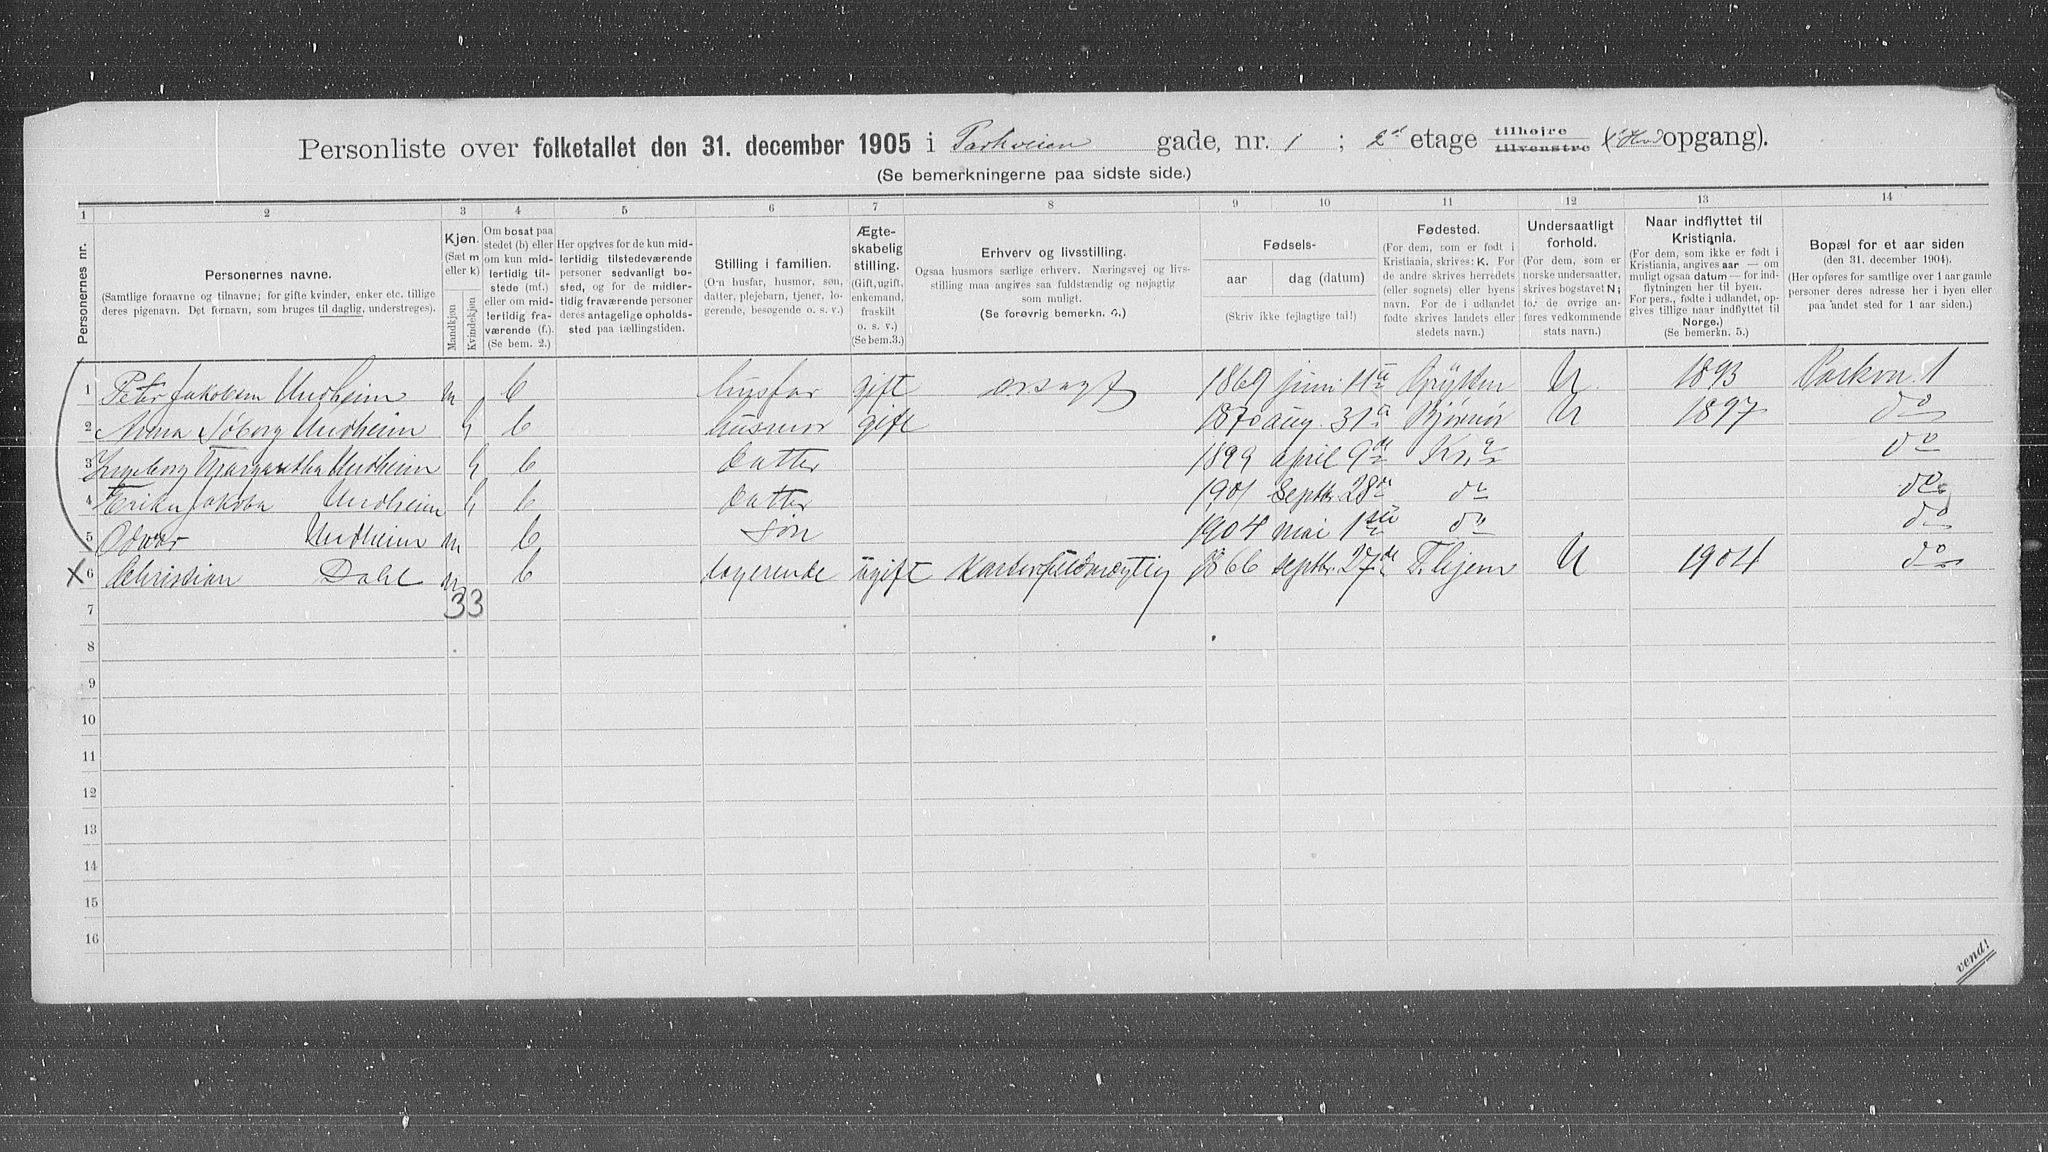 Personliste over folketallet den 31. december 1905 i Parkveien gade, nr. 1 ; 2 etage tilhøjre tilvenstre ( opgang).
(Se bemerkningerne paa sidste side.)
1 2 3 4 5 6 7 8 9 10 11 12 13 14
Personernes nr.
Personernes navne.
(Samtlige fornavne og tilnavne; for gifte kvinder, enker etc. tillige deres pigenavn. Det fornavn, som bruges til daglig, understreges).
Kjøn.
(Sæt m eller k)
Mandkjøn
Kvindekjøn
Om bosat paa stedet (b) eller om kun midlertidig tilstede (mt.) eller om midlertidig fraværende (f.). (Se bem. 2.)
Her opgives for de kun midlertidig tilstedeværende personer sedvanligt bosted, og for de midlertidig fraværende personer deres antagelige opholdssted paa tællingstiden.
Stilling i familien.
(O: husfar, husmor, søn, datter, plejebarn, tjener, logerende, besøgende o. s. v.)
Ægteskabelig stilling.
(Gift, ugift, enkemand, fraskilt o. s. v.)
(Se bem.3.)
Erhverv og livsstilling.
Ogsaa husmors særlige erhverv. Næringsvej og livsstilling maa angives saa fuldstændig og nøjagtig som muligt.
(Se forøvrig bemerkn. 4.)
Fødsels-
aar
dag (datum)
(Skriv ikke fejlagtige tal!)
Fødested.
(For dem, som er født i Kristiania, skrives: K. For de andre skrives herredets (eller sognets) eller byens navn. For de i udlandet fødte skrives landets eller stedets navn.)
Undersaatligt forhold.
(For dem, som er norske undersaatter, skrives bogstavet N; for de øvrige anføres vedkommende stats navn.)
Naar indflyttet til Kristiania.
(For dem, som ikke er født i Kristiania, angives aar — om muligt ogsaa datum — for indflytningen her til byen. For pers., fødte i udlandet, opgives tillige naar indflyttet til Norge.)
(Se bemerkn. 5.)
Bopæl for et aar siden
(den 31. december 1904).
(Her opføres for samtlige over 1 aar gamle personer deres adresse her i byen eller paa andet sted for 1 aar siden.)
1 Petar Jakobsen Undheim m b husfar gift 1869 juni 11te Grytten N 1893 Parkvn. 1
2 Anna Søborg Undheim k b husmor gift 1870 aug. 31te Bjørnør N 1897 do
3 Ingeborg Margaretha Undheim k b Datter 1899 april 9de Kr.a do
4 Erika Jakoba Undheim k b Datter 1901 septbr. 28de do do
5 Odvar Undheim m b søn 1904 mai 1ste do do
X 6 Christian Dahl m b logerende ugift Kontorfuldmægtig 1866 septbr. 27de N 1904 do
33
7
8
9
10
11
12
13
14
15
16
vend!